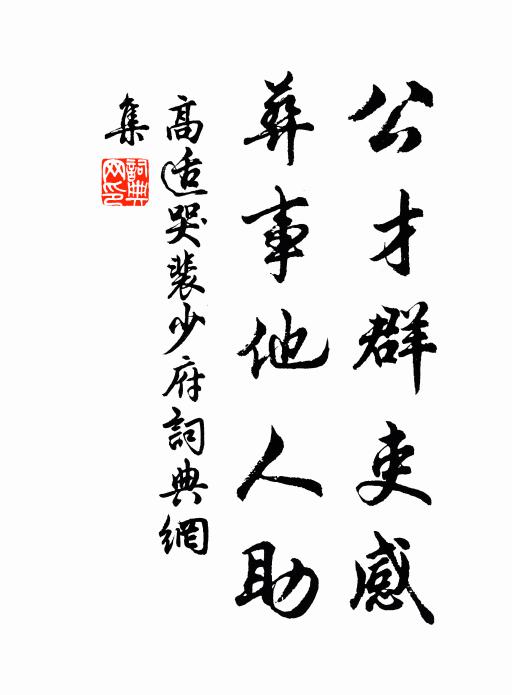 公才群吏感
葬事他人助
高适哭裴少府詞典網
集
詞典網印